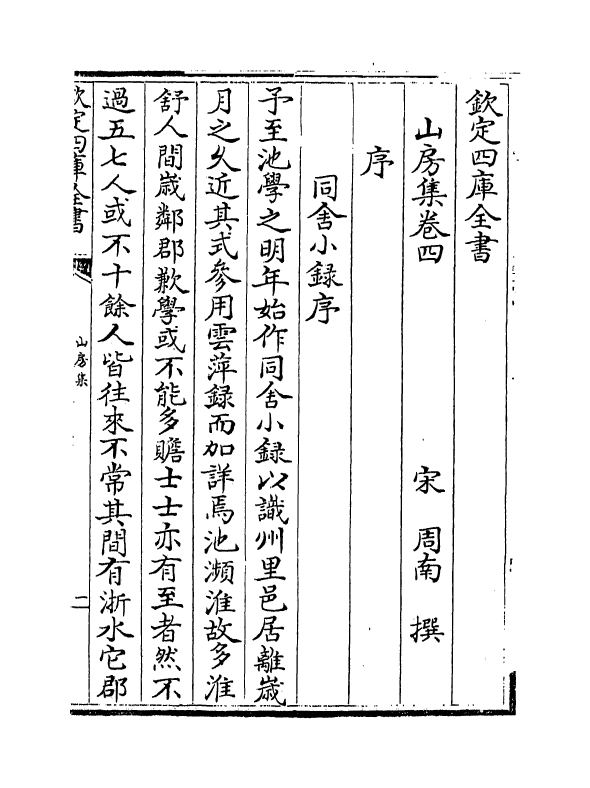 欽定四庫全書
山房集卷四
宋 周南 撰
序
同舍小録序
予至池學之明年始作同舍小録以識州里邑居離歲
月之久近其式參用雲萍録而加詳焉池瀕淮故多淮
舒人間歲鄰郡歉學或不能多贍士士亦有至者然不
過五七人或不十餘人皆往來不常其間有浙水它郡
欽定四庫全書
山房集